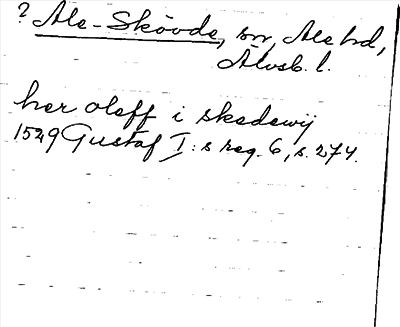 ? Ale-Skövde, sn, Ale hd,
Älvsb. l.
her oleff i skedewij
1529 Gustaf I:s reg. 6, s. 274.